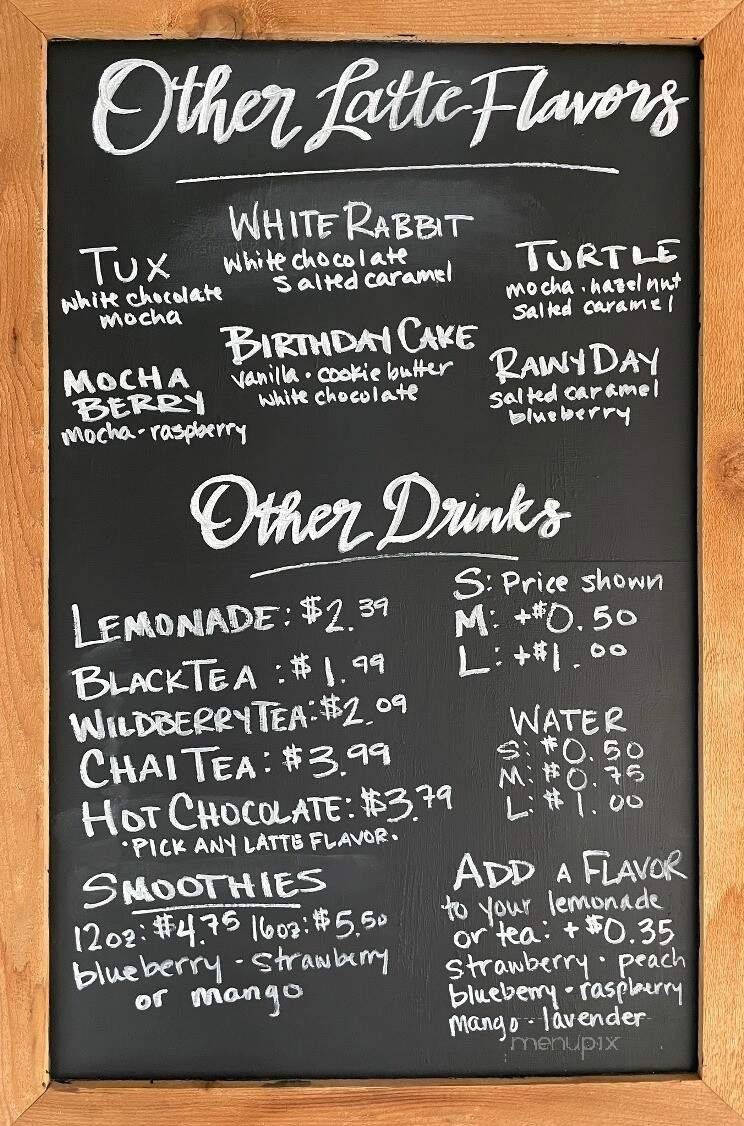 Other Latte Flavors
WHITE RABBIT
white chocolate
salted caramel
TUX
white chocolate
mocha
TURTLE
mocha · hazelnut
salted caramel
BIRTHDAY CAKE
vanilla · cookie butter
white chocolate
MOCHA
BERRY
mocha · raspberry
RAINY DAY
salted caramel
blueberry
Other Drinks
LEMONADE: $2.39
BLACK TEA: $1.99
WILDBERRY TEA: $2.09
CHAI TEA: $3.99
HOT CHOCOLATE: $3.79
· PICK ANY LATTE FLAVOR ·
S: Price shown
M: +$0.50
L: +$1.00
WATER
S: $0.50
M: $0.75
L: $1.00
SMOOTHIES
12oz: $4.75 16oz: $5.50
blueberry · strawberry
or mango
ADD A FLAVOR
to your lemonade
or tea: +$0.35
strawberry · peach
blueberry · raspberry
mango · lavender
menupix